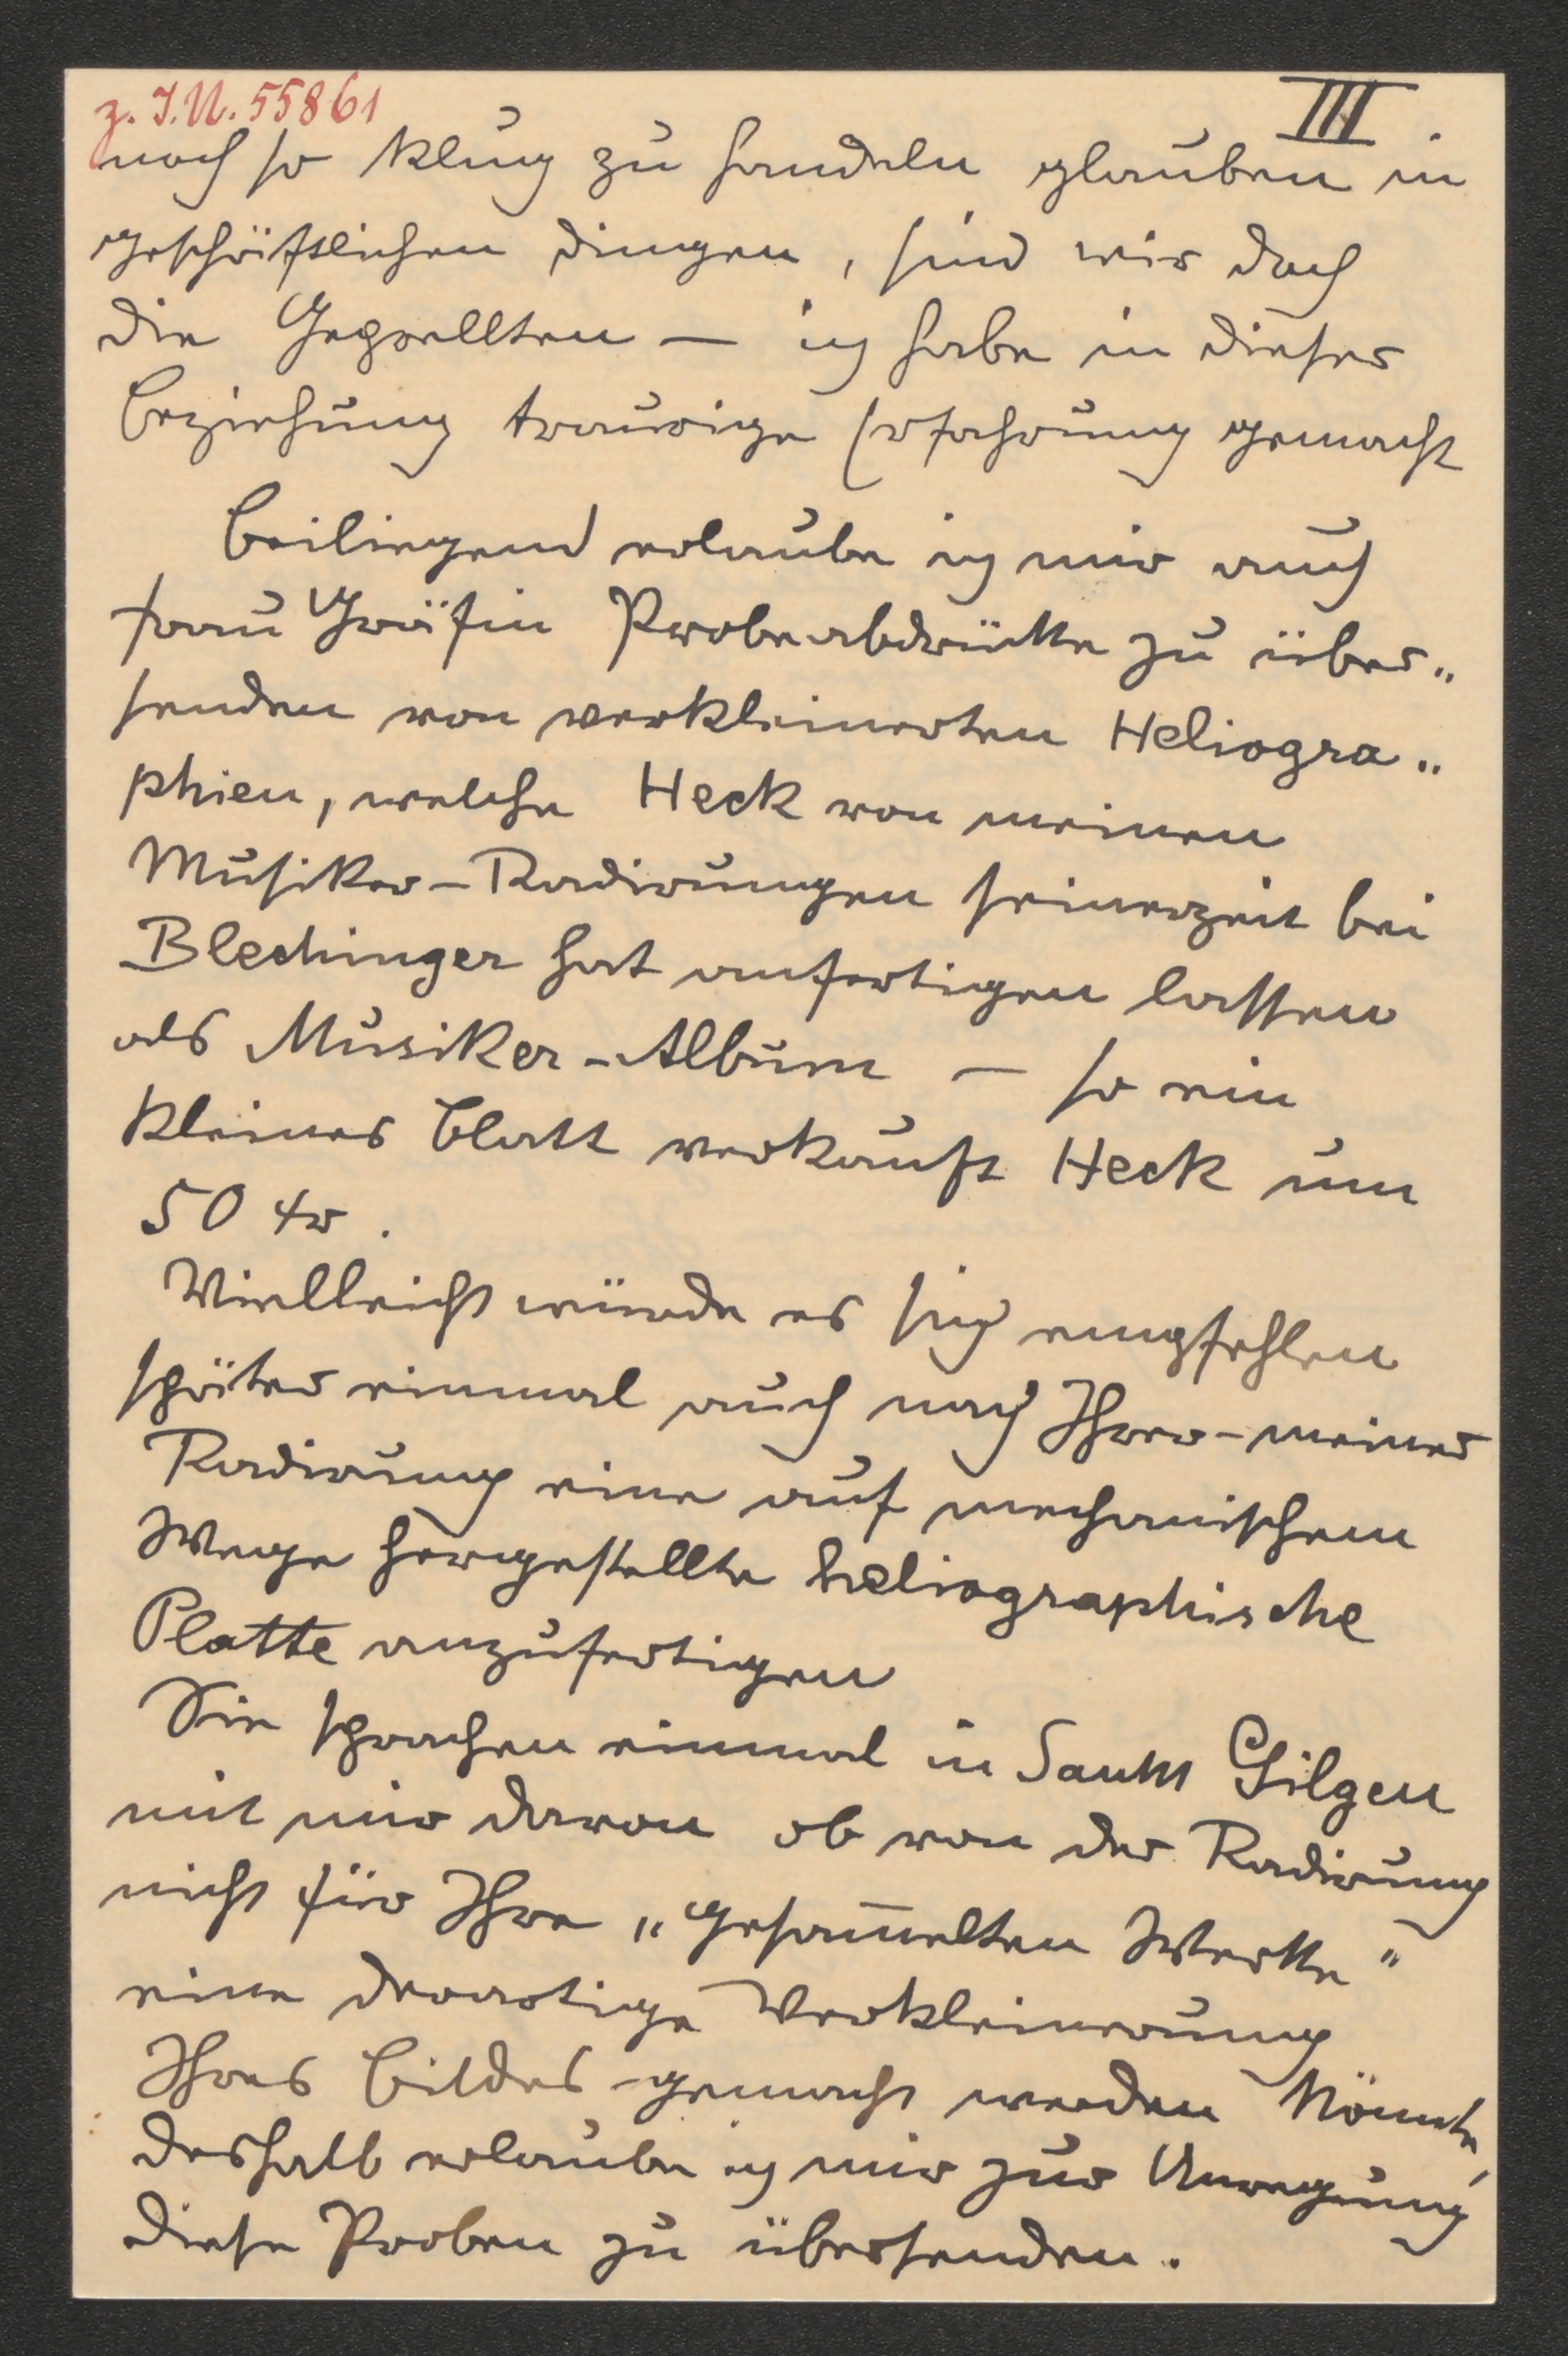 z. I.N. 55861
III.
noch so klug zu handeln glauben in
geschäftlichen Dingen, sind wir doch
die Geprellten — ich habe in dieser
Beziehung traurige Erfahrung gemacht
Beiliegend erlaube ich mir auch
Frau Gräfin Probeabdrücke zu über„
senden von verkleinerten Heliogra„
phien, welche Heck von meinen
Musiker-Radirungen seinerzeit bei
Blechinger hat anfertigen lassen
als Musiker-Album — so ein
kleines Blatt verkauft Heck um
50 kr.
Vielleicht würde es sich empfehlen
später einmal auch nach Ihrer-meiner
Radirung eine auf mechanischem
Wege hergestellte heliographische
Platte anzufertigen
Sie sprachen einmal in Sankt Gilgen
mit mir davon ob von der Radirung
nicht für Ihre „gesam̅elten Werke"
eine derartige Verkleinerung
Ihres Bildes gemacht werden könnte,
deshalb erlaube ich mir zur Anregung
diese Proben zu übersenden.